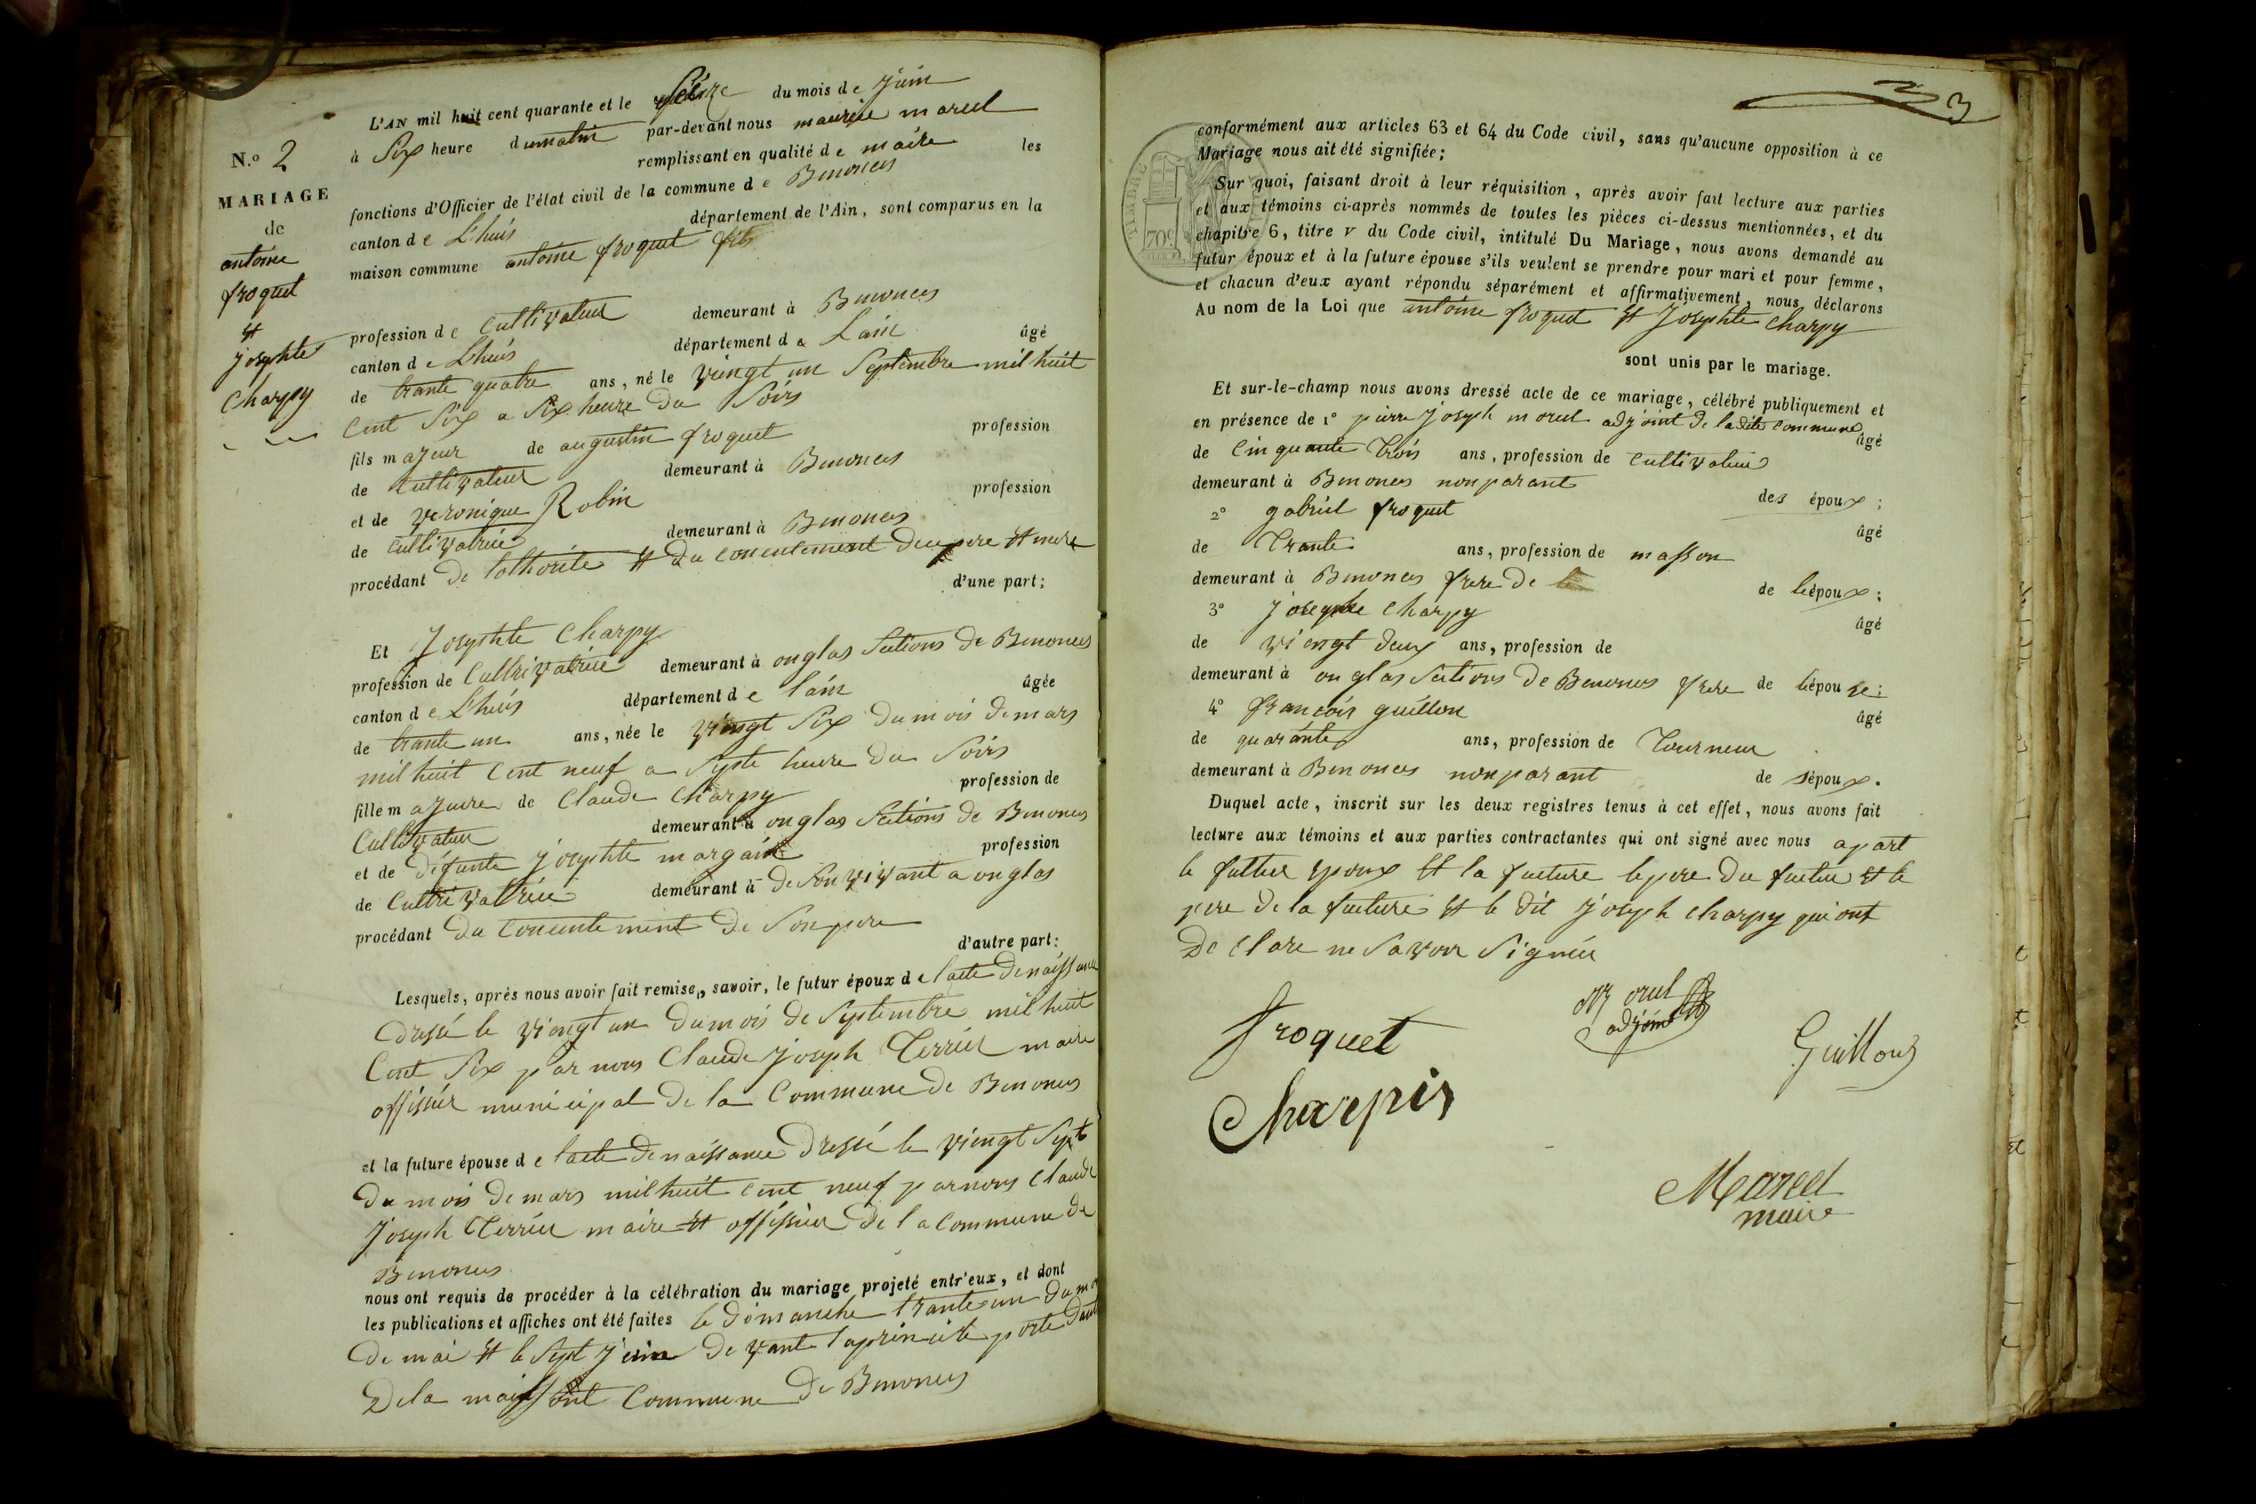 N.º 2
MARIAGE
de
antoine
froquet
et
josephte
Charpy
L'AN mil huit cent quarante et le seize du mois de juin
à Six heure du matin par-devant nous maurice morel
remplissant en qualité de maire les
fonctions d'Officier de l'état civil de la commune de Benonces
canton de Lhuis département de l'Ain, sont comparus en la
maison commune antoine froquet fils
profession de Cultivateur demeurant à Benonces
canton de Lhuis département de Lain âgé
de trante quatre ans, né le vingt un Septembre mil huit
Cent Six a Six heure du Soirs
fils majeur de augustin froquet profession
de Cultivateur demeurant à Benonces
et de veronique Robin profession
de cultivatrice demeurant à Benonces
procédant de lothorite et du concentement de pere et mere
d'une part;
Et Josephte Charpy
profession de Cultrivatrice demeurant à onglas Sections de Benonces
canton de Lhuis département de lain âgée
de trante un ans, née le vingt Six du mois de mars
mil huit Cent neuf a Septe heure du Soirs
fille majeure de Claude Charpy profession de
Cultivateur demeurant à onglas Sections de Benonces
et de défunte josephte margain profession
de Cultrivatrice demeurant à de Son vivant a onglas
procédant du Concentement de Son pere
d'autre part:
Lesquels, après nous avoir fait remise, savoir, le futur époux de lacte de naissance
dressé le viengt un du mois de Septembre mil huit
Cent Six par nous Claude joseph Terrier maire
offisier municipal de la Commune de Benonces
et la future épouse de lacte de naissance dressé le viengt Sept
du mois de mars mil huit cent neuf par nous Claude
joseph Terrier maire et offisier de la commune de
Benonces
nous ont requis de procéder à la célébration du mariage projeté entr'eux, et dont
les publications et affiches ont été faites le dimanche trante un du
de mai et le Sept juin devant la porte
De la commune de Benonces
3
conformément aux articles 63 et 64 du Code civil, sans qu'aucune opposition à ce
Mariage nous ait été signifiée;
Sur quoi, faisant droit à leur réquisition, après avoir fait lecture aux parties
et aux témoins ci-après nommés de toutes les pièces ci-dessus mentionnées, et du
chapitre 6, titre v du Code civil, intitulé Du Mariage, nous avons demandé au
futur époux et à la future épouse s'ils veulent se prendre pour mari et pour femme,
et chacun d'eux ayant répondu séparément et affirmativement, nous déclarons
Au nom de la Loi que antoine froquet et Josephte charpy
sont unis par le mariage.
Et sur-le-champ nous avons dressé acte de ce mariage, célébré publiquement et
en présence de 1º pierre joseph morel adjoint de ladite commune
âgé
de Cinquante trois ans, profession de cultivateur
demeurant à Benonces non parant des époux;
2º gabriel froquet âgé
de trante ans, profession de masson
demeurant à Benonces frere de de lépoux;
3º josephe charpy âgé
de viengt deux ans, profession de
demeurant à onglas Sections de Benonces frere de lépouse;
4º francois guillon âgé
de quarante ans, profession de Tourneur
demeurant à Benonces non parant de lépoux.
Duquel acte, inscrit sur les deux registres tenus à cet effet, nous avons fait
lecture aux témoins et aux parties contractantes qui ont signé avec nous apart
le futtur epoux et la future le pere du futur et le
pere de la future et le dit joseph charpy qui ont
De clare ne Savoir Signér
froquet
Morel
adjoint
Guillon
Charpin
Morel
maire
TIMBRE
70c